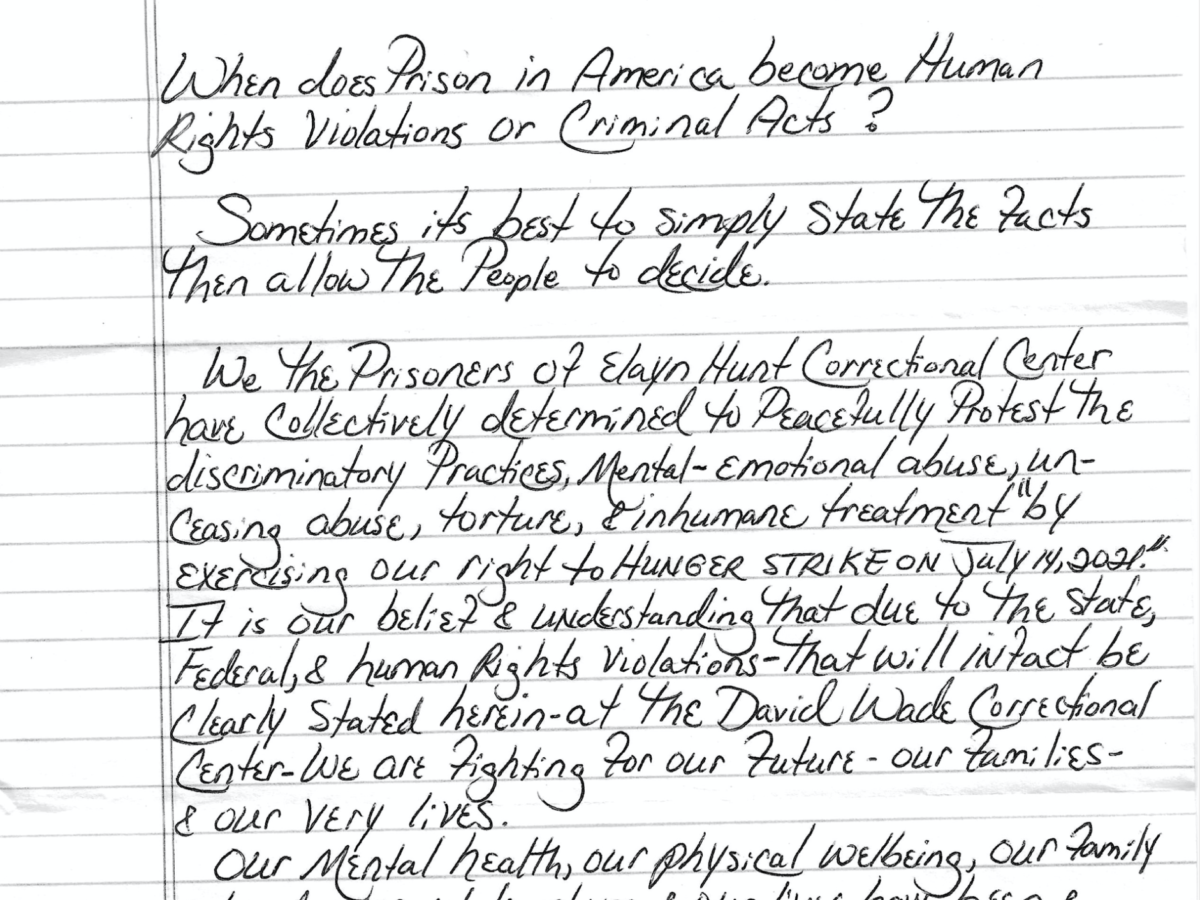 When does Prison in America become Human
Rights Violations or Criminal Acts?
Sometimes its best to simply State The Facts
Then allow The People to decide.
We The Prisoners of Elayn Hunt Correctional Center
have Collectively determined to Peacefully Protest The
discriminatory Practices, Mental-Emotional abuse, un-
ceasing abuse, torture, & inhumane treatment "by
exercising our right to HUNGER STRIKE ON July 14, 2021."
It is our belief & understanding That due to The State,
Federal, & human Rights Violations-That will infact be
Clearly Stated herein-at The David Wade Correctional
Center-We are Fighting For our Future - our Families-
& our very lives.
Our Mental health, our physical welbeing, our Family
& our lives have been &